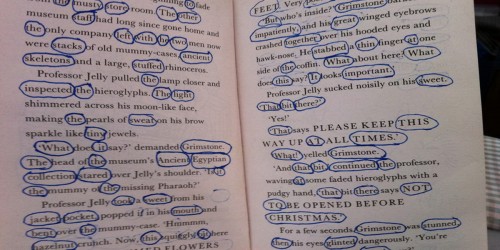 the musty store room. The other
museum staff had long since gone home and
the only company left with the two men now
were stacks of old mummy-cases, ancient
skeletons and a large, stuffed rhinoceros.
Professor Jelly pulled the lamp closer and
inspected the hieroglyphs. The light
shimmered across his moon-like face,
making the pearls of sweat on his brow
sparkle like tiny jewels.
'What does it say?' demanded Grimstone.
The head of the museum's Ancient Egyptian
collection stared over Jelly's shoulder. 'Is it
the mummy of the missing Pharaoh?'
Professor Jelly took a sweet from his
jacket pocket, popped it in his mouth and
bent over the mummy-case. 'Hmmm,
hazelnut crunch. Now, this
FLOWERS
FEET. Very
'But who's inside?' Grimstone
impatiently, and his great winged eyebrows
crashed together over his hooded eyes and
hawk-nose. He stabbed a thin finger at one
side of the coffin. 'What about here? What
does this say? It looks important.'
Professor Jelly sucked noisily on his sweet.
'That bit there?'
'Yes!'
'That says PLEASE KEEP THIS
WAY UP AT ALL TIMES.'
'What!' yelled Grimstone.
'And that bit,' continued the professor,
waving at some faded hieroglyphs with a
pudgy hand, 'that bit there says NOT
TO BE OPENED BEFORE
CHRISTMAS.'
For a few seconds, Grimstone was stunned,
then his eyes glinted dangerously. 'You're